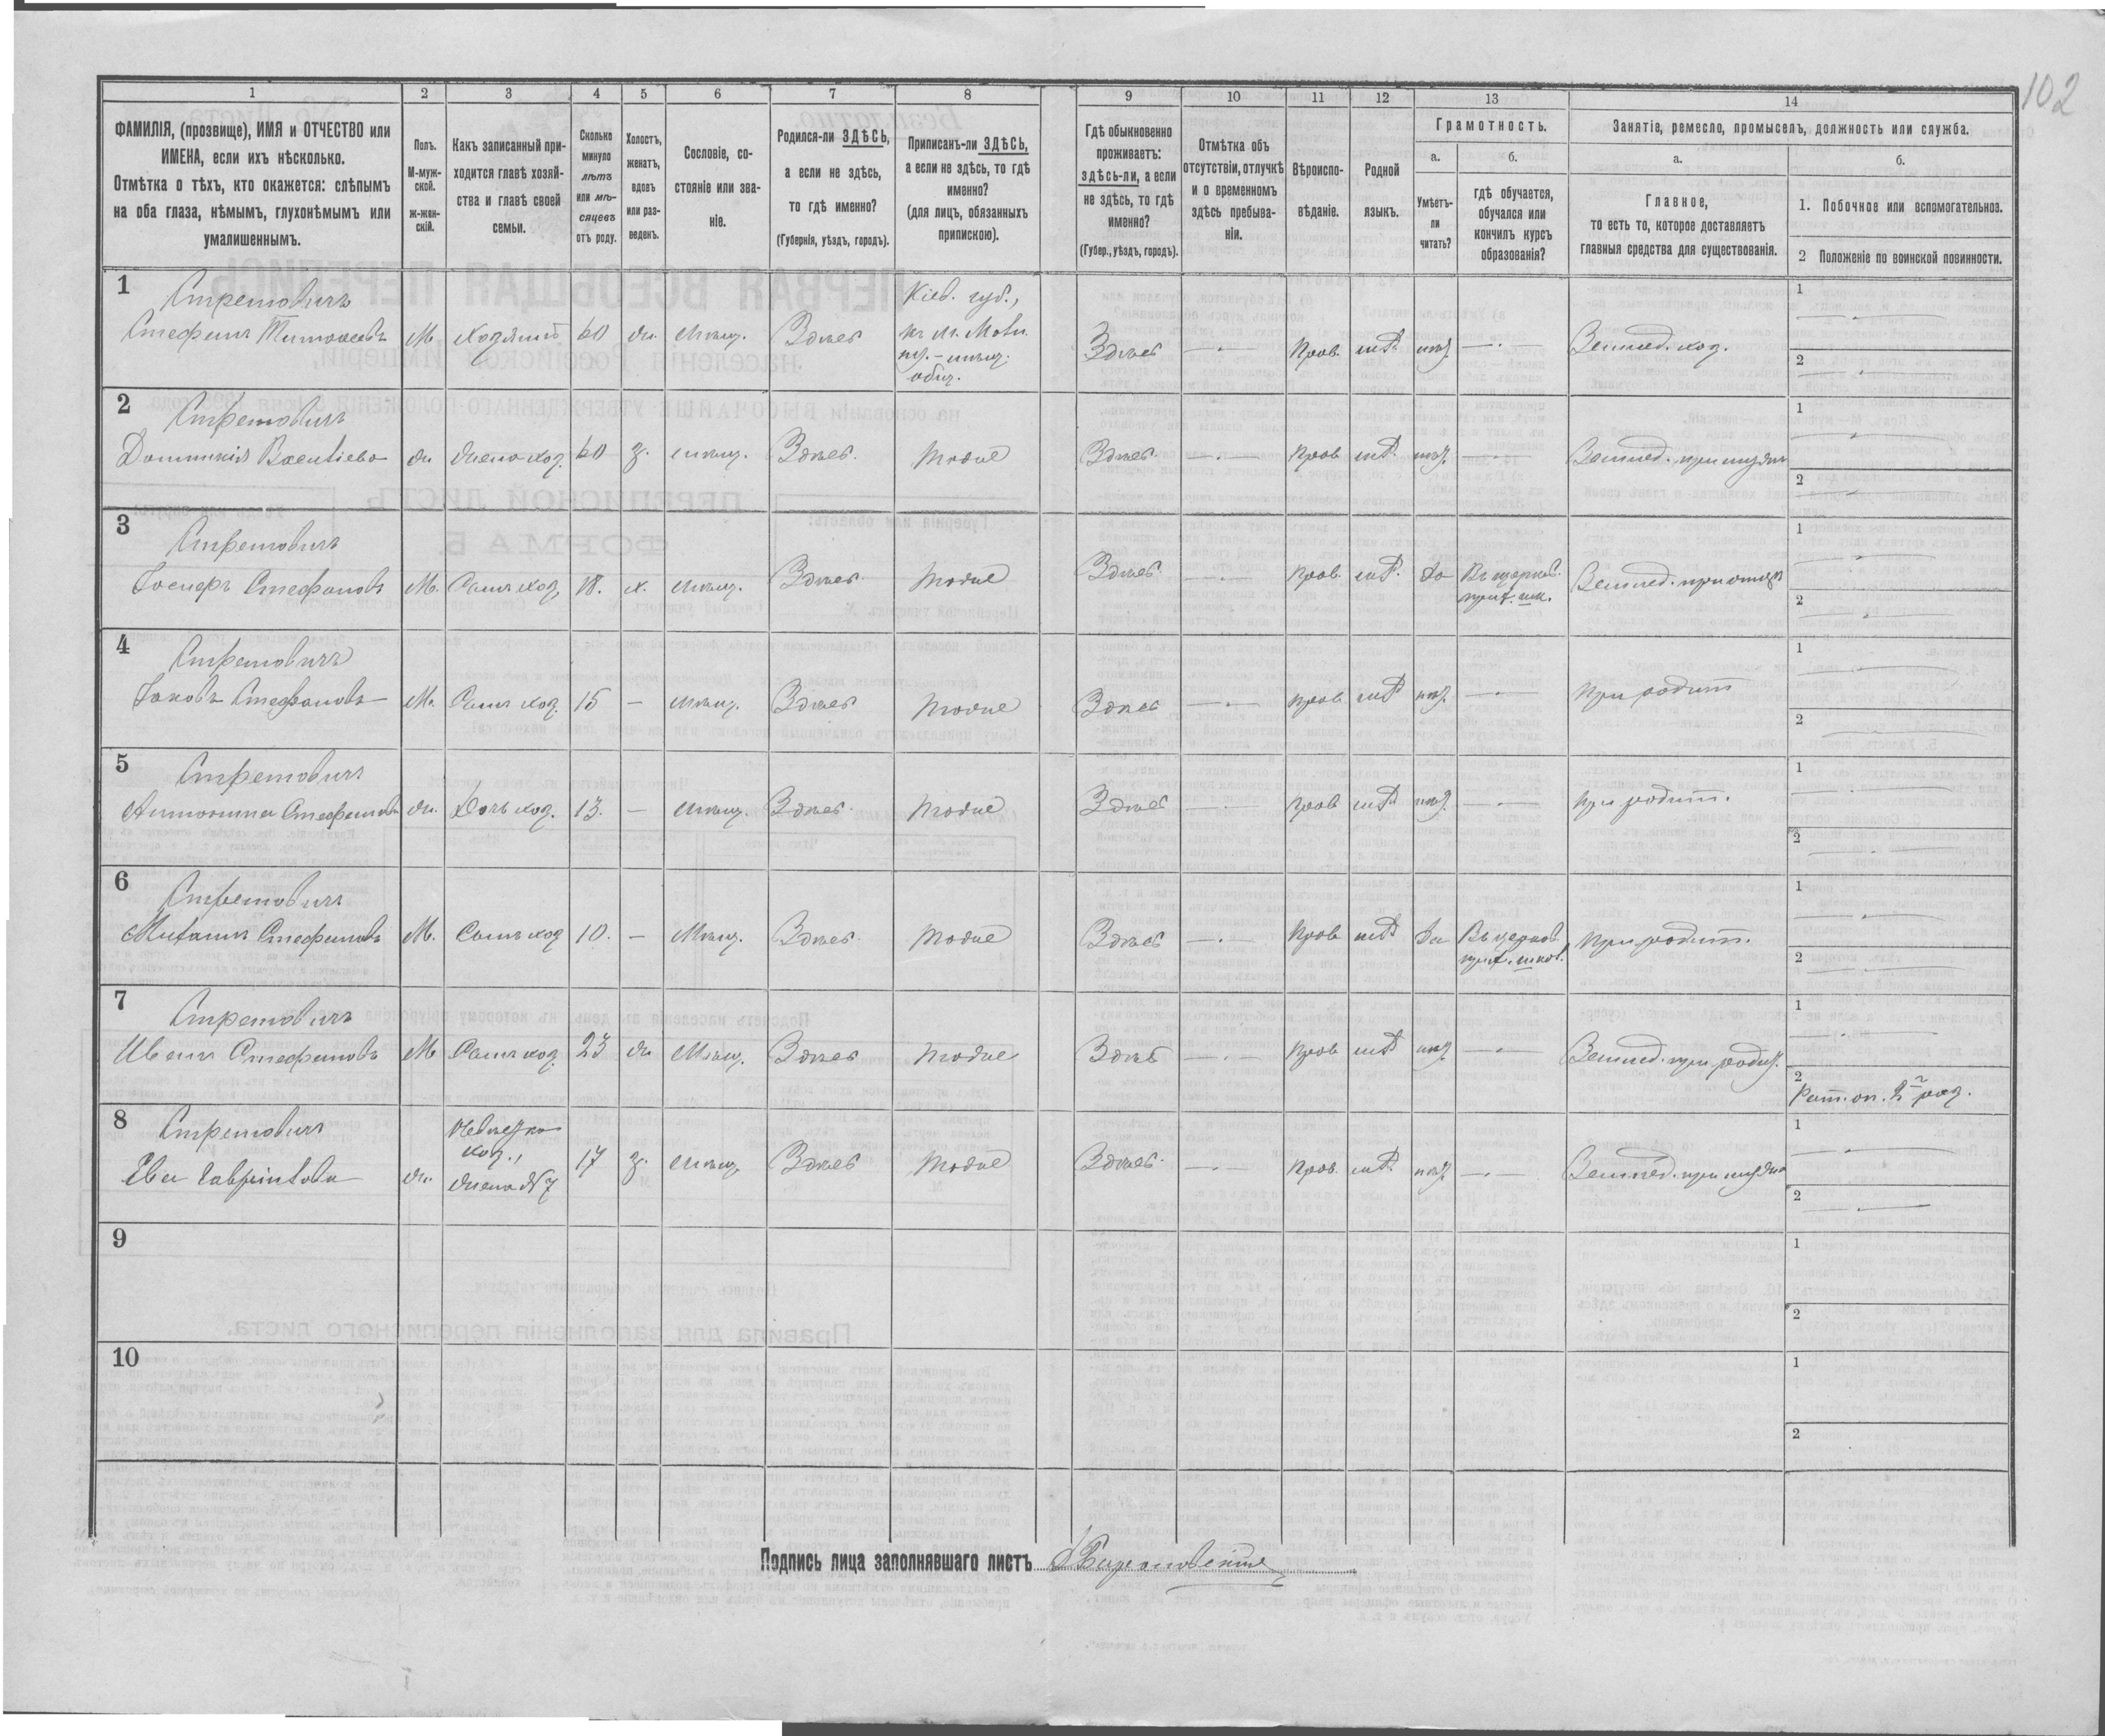 102
1 2 3 4 5 6 7 8 9 10 11 12 13 14
ФАМИЛІЯ, (прозвище), ИМЯ и ОТЧЕСТВО или
ИМЕНА, если ихъ нѣсколько.
Отмѣтка о тѣхъ, кто окажется: слѣпымъ
на оба глаза, нѣмымъ, глухонѣмымъ или
умалишеннымъ.
Полъ.
М-муж-
ской.
ж-жен-
скій.
Какъ записанный при-
ходится главѣ хозяй-
ства и главѣ своей
семьи.
Сколько
минуло
лѣтъ
или мѣ-
сяцевъ
отъ роду.
Холостъ,
женатъ,
вдовъ
или раз-
веденъ.
Сословіе, со-
стояніе или зва-
ніе.
Родился-ли ЗДѢСЬ,
а если не здѣсь,
то гдѣ именно?
(Губернія, уѣздъ, городъ).
Приписанъ-ли ЗДѢСЬ,
а если не здѣсь, то гдѣ
именно?
(для лицъ, обязанныхъ
припискою).
Гдѣ обыкновенно
проживаетъ:
здѣсь-ли, а если
не здѣсь, то гдѣ
именно?
(Губер., уѣздъ, городъ).
Отмѣтка объ
отсутствіи, отлучкѣ
и о временномъ
здѣсь пребыва-
ніи.
Вѣроиспо-
вѣданіе.
Родной
языкъ.
Грамотность.
а.
Умѣетъ-
ли
читать?
б.
гдѣ обучается,
обучался или
кончилъ курсъ
образованія?
Занятіе, ремесло, промыселъ, должность или служба.
а.
Главное,
то есть то, которое доставляетъ
главныя средства для существованія.
б.
1. Побочное или вспомогательное.
2 Положеніе по воинской повинности.
1 Стретовичъ Кіев. губ., 1
Стефанъ М. Хозяинъ 60 ж. мѣщ. Здѣсь Здѣсь прав. нѣт Землед. хоз. 2
мѣщ.
общ.
2 Стретовичъ 1
ж. жена хоз. 60 з. мѣщ. Здѣсь тоже Здѣсь прав. нѣт Землед. при мужѣ 2
3 Стретовичъ 1
Іосифъ Стефановъ М. Сынъ хоз. 18. х. мѣщ. Здѣсь тоже Здѣсь прав. да Въ церков. Землед. при отцѣ 2
прих. шк.
4 Стретовичъ 1
Іаковъ Стефановъ М. Сынъ хоз. 15 — мѣщ. Здѣсь тоже Здѣсь прав. нѣт при родит 2
5 Стретовичъ 1
Антонина Стефанов ж. Дочь хоз. 13. — мѣщ. Здѣсь тоже Здѣсь прав нѣт при родит. 2
6 Стретовичъ 1
Михаилъ Стефановъ М. Сынъ хоз 10. — Мѣщ. Здѣсь тоже Здѣсь прав да Въ церков. при родит. 2
прих. школ.
7 Стретовичъ 1
Иванъ Стефановъ М Сынъ хоз. 23 ж Мѣщ. Здѣсь тоже Здѣсь прав нѣт Землед. при родит. 2
Рат. оп. 2го раз.
8 Стретовичъ Невѣстка 1
хоз.,
Ева Гавріилова ж. жена №7 17 з. мѣщ. Здѣсь тоже Здѣсь прав. нѣт Землед. при мужѣ 2
9 1
2
10 1
2
Подпись лица заполнявшаго листъ